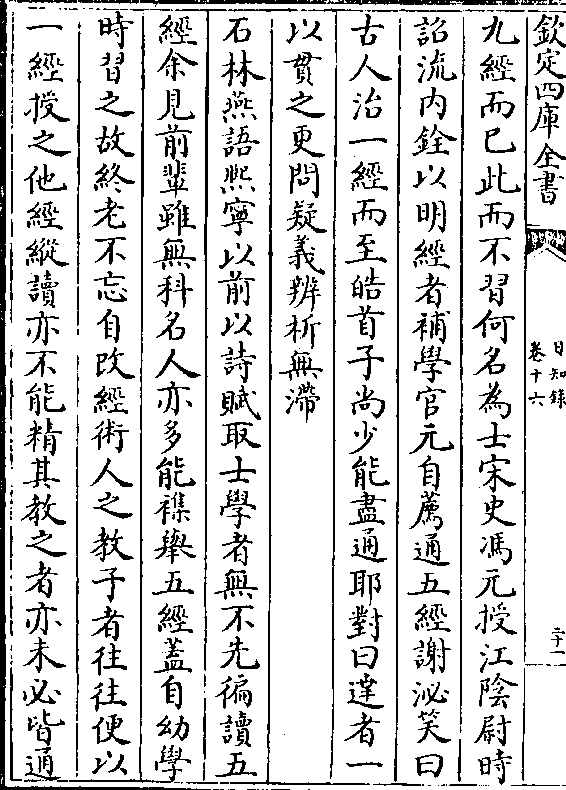 欽定四庫全書
日知錄
卷十六
二十一
九經而已此而不習何名為士宋史馮元授江陰尉時
詔流内銓以明經者補學官元自薦通五經謝泌笑曰
古人治一經而至皓首子尚少能盡通耶對曰達者一
以貫之更問疑義辨析無滯
石林燕語熙寧以前以詩賦取士學者無不先徧讀五
經余見前輩雖無科名人亦多能襍舉五經蓋自幼學
時習之故終老不忘自改經術人之教子者往往便以
一經授之他經縱讀亦不能精其教之者亦未必皆通